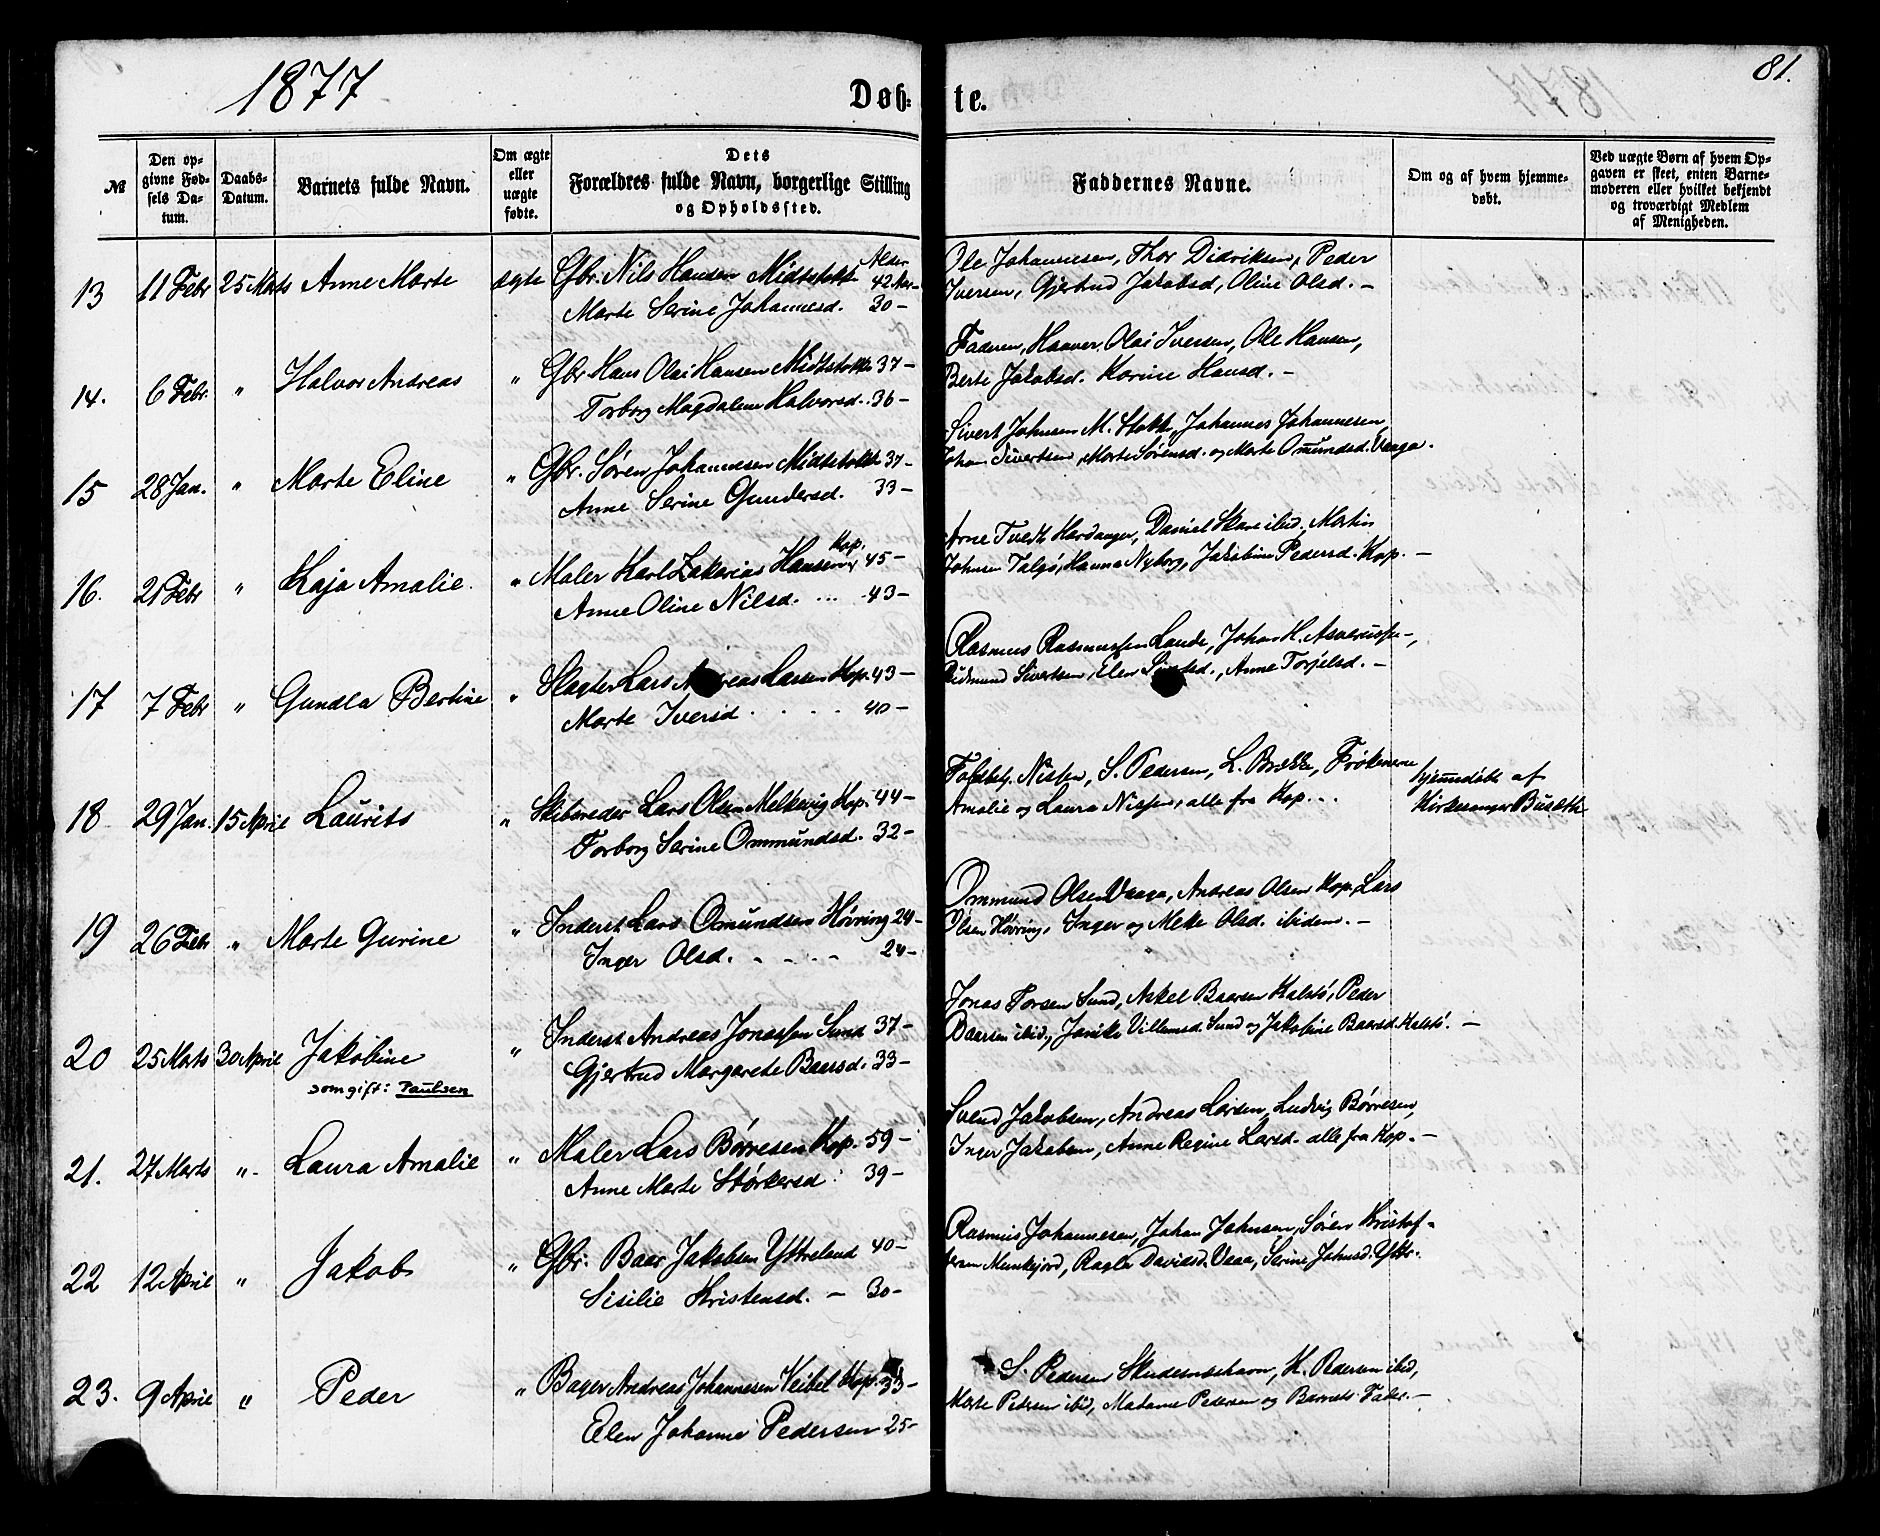 1877
Døb-
te.
81.
№
Den op-
givne Fød-
sels Da-
tum.
Daabs-
Datum.
Barnets fulde Navn.
Om ægte
eller
uægte
fødte.
Dets
Forældres fulde Navn, borgerlige Stilling
og Opholdssted.
Faddernes Navne.
Om og af hvem hjemme-
døbt.
Ved uægte Børn af hvem Op-
gaven er skeet, enten Barne-
moderen eller hvilket bekjendt
og troværdigt Medlem
af Menigheden.
13 11 Febr 25 Marts Anne Marte ægte Gbr. Nils Hansen Midtstokke 42 Aar-
Marte Serine Johannesd. 30 -
Ole Johannesen, Thor Didriksen, Peder
Iversen, Gjertrud Jakobsd, Oline Olsd. -
14. 6 Febr. " Halvor Andreas " Gbr. Hans Olai Hansen Midtstokke 37 -
Torborg Magdalene Halvorsd. 36 -
Faderen, Haaver Olai Iversen, Ole Hansen,
Berte Jakobsd. Karine Hansd. -
15 28 Jan. " Marte Eline " Gbr. Søren Johannesen Midtstokke 37 -
Anne Serine Gundersd. 33 -
Sivert Johnsen M. Stokke, Johannes Johannesen,
Johan Sivertsen, Marte Sørensd. og Marte Omundsd. Vaaga.
16. 21 Febr " Kaja Amalie. " Maler Karl Zakarias Hansen Kop. 45 -
Anne Oline Nilsd. ... 43 -
Arne Tveth Hardanger, Daniel Skare ibid, Martin
Johnsen Talgø, Hanna Nyborg, Jakobine Pedersd. Kop. -
17 7 Febr " Gundla Bertine " Slagter Lars Andreas Larsen Kop. 43 -
Marte Iversd . . . . 40 -
Rasmus Rasmussen Lande, Johan H.
Sivertsen, Elen, Anne Torjelsd. -
18 29 Jan. 15 April Laurits " Skibsreder Lars Olsen Melkevig Kop. 44 -
Torborg Serine Ommundsd. 32 -
Toldbetj. Nissen, S. Pedersen, L. Brekke, Frøknerne
Amalie og Laura Nissen, alle fra Kop. . .
hjemmedøbt af
Kirkesanger Busæth
19 26 Febr " Marte Gurine " Inderst Lars Omundsen Høvring 24 -
Inger Olsd. - - - - 24 -
Ommund Olsen Vaaga, Andreas Olsen Kop, Lars
Olsen Høvring, Inger og Mette Olsd. ibidem. -
20 25 Marts 30 April Jakobine " Inderst Andreas Jonassen Sund 37 -
som gift: Paulsen
Gjertrud Margarete Baarsd. 33 -
Jonas Torsen Sund, Askel Baarsen Kalstø, Peder
Baarsen ibid, Jarike Villumsd. Sund og Jakobine Baarsd. Kalstø. -
21. 27 Marts " Laura Amalie " Maler Lars Børresen Kop. 59 -
Anne Marte Størkersd. 39 -
Svend Jakobsen, Andreas Larsen, Ludvig Børresen,
Inger Jakobsen, Anne Regine Larsd. alle fra Kop. -
22 12 April " Jakob " Gbr. Baar Jakobsen Yttreland 40 -
Sisilie Kristensd. - 30 -
Rasmus Johannesen, Johan Johnsen, Søren Kristof-
fersen Munkejord, Ragla Davidsd. Vaaa, Serine Johnsd. Yttr.
23. 9 April " Peder " Bager Andreas Johannesen Veibel Kop. 33 -
Elen Johanne Pedersen 25 -
S. Pedersen Skudesneshavn, H. Pedersen ibid,
Marte Pedersen ibid, Madame Pedersen og Barnets Fader. -